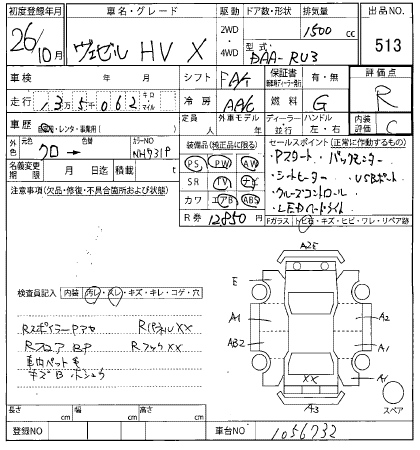 初度登録年月 車名・グレード 駆動 ドア数・形状 排気量 出品NO.
26/10月 ヴェゼル HV X 2WD 4WD 1500 cc 513
型式 DAA-RU3
車検 年 月 シフト FAT 保証書 有・無 評価点
走行 13万5千062 キロ マイル 冷房 AAC 燃料 G R
車歴 自家用・レンタ・事業用( ) 定員 人 外車モデル 年 ディーラー 並行 ハンドル 左・右 内装評価 C
外色 元色 クロ → 色替 カラーNO NH731P
名義変更期限 月 日迄 積載 t
装備品(純正品に限る)
PS PW AW
SR TV ナビ
カワ エアB ABS
R券 12,850円
セールスポイント (正常に作動するもの)
・Pスタート ・バックモニター
・シートヒーター ・USBポート
・クルーズコントロール
・LEDヘッドライト
Fガラス 飛石・キズ・ヒビ・ワレ・リペア跡
注意事項(欠品・修復・不具合箇所および状態)
A2E
E
A1 A2
AB2 A1
XX A1
A3
スペア
検査員記入 内装 汚レ・スレ・キズ・キレ・コゲ・穴
RスポイラーPアセ RパネルXX
Rフロア BP RフックXX
車内ペット毛
キズB ホシュウ
長さ cm 幅 cm 高さ cm
登録NO 車台NO 1056732